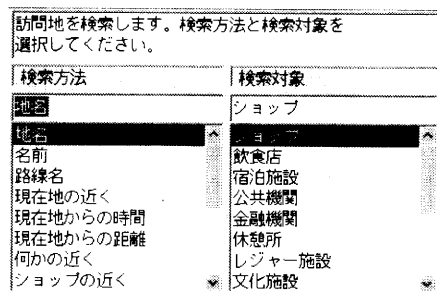 訪問地を検索します。検索方法と検索対象を
選択してください。
検索方法
検索対象
地名
ショップ
地名
名前
路線名
現在地の近く
現在地からの時間
現在地からの距離
何かの近く
ショップの近く
ショップ
飲食店
宿泊施設
公共機関
金融機関
休憩所
レジャー施設
文化施設